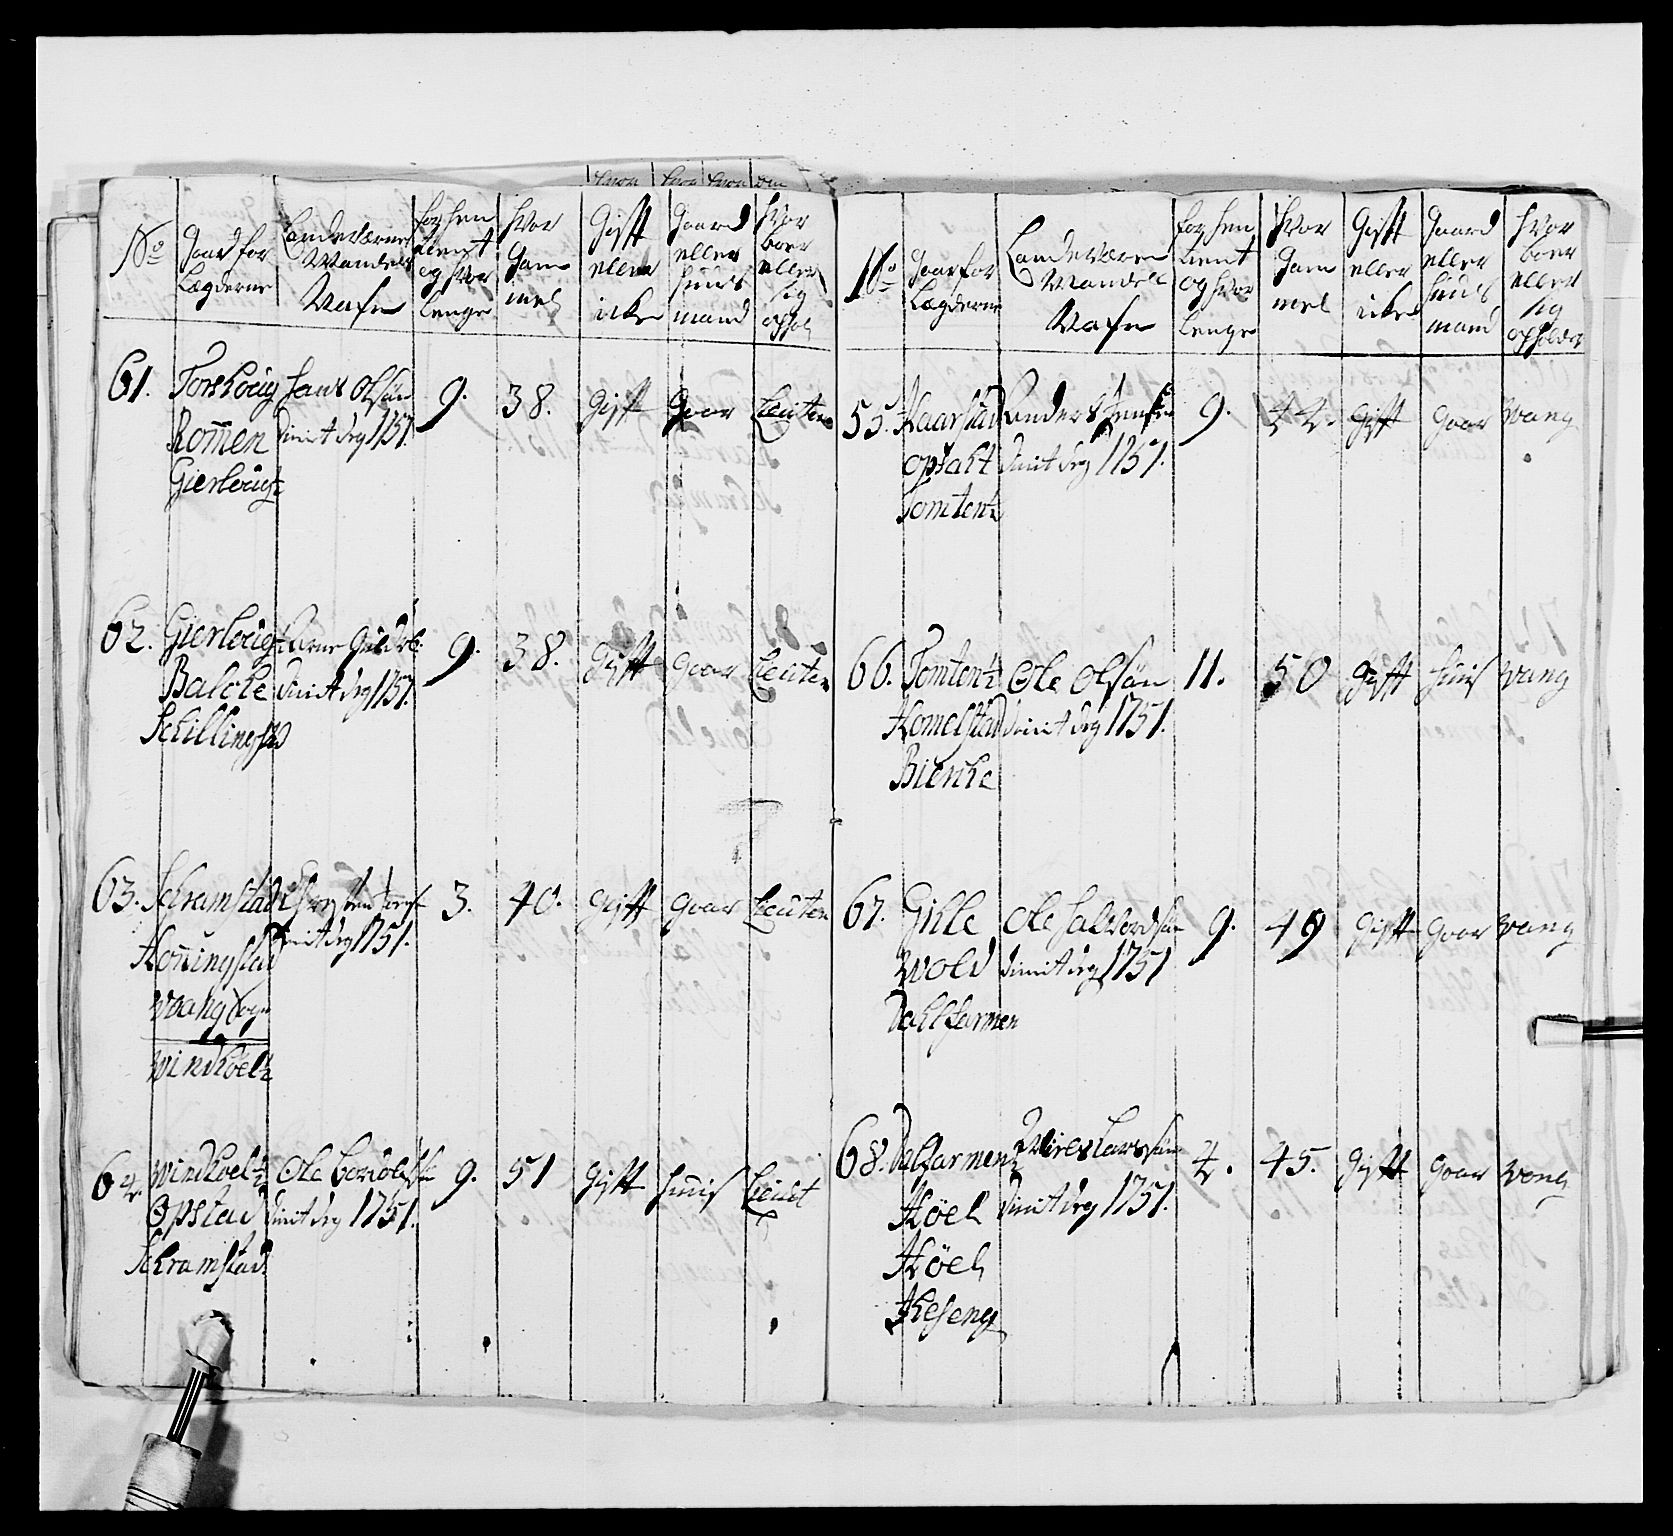 No
Gaard for
Lægderne
Landeværns
Mandens
Nafn
for hen
tient
og hvor
lenge
Hvor
Gam
mel
Gift
eller
icke
Gaard
eller
Huus
mand
Hvor
boer
eller
sig
ophol
61.
Torshoug
Rom̄en
Gierloug ½
Hans Olsøn
Dimit drg 1751.
9.
38.
Gift
Gaar
Leuten
62.
Gierloug ½
Balche
Schillingstad
Dimit drg 1751.
9.
38.
Gift
Gaar
Leuten
63.
Schramstad
Hon̄ingstad
Wang Sogn
Windkoel ½
Dimit drg 1751.
3.
40.
Gift
Gaar
Leuten
64.
Windkoel ½
Opstad
Schramstad
Ole
Dimit drg 1751.
9.
51
Gift
Huus
Leut
No
Gaar for
Lægderne
Landeværn
Mandens
Nafn
for hen
tient
og hvor
lenge
Hvor
Gam
mel
Gift
eller
icke
Gaard
eller
Huus
mand
Hvor
boer
eller
sig
opholder
55.
Kaarstad
Opsaht
Tomten ½
Anders Jensøn
Dimit drg 1751.
9.
44.
Gift
Gaar
Wang
66.
Tomten ½
Homelstad
Bierke
Ole Olsøn
Dimit drg 1751.
11.
50
Gift
Huus
Wang
67.
Gille
Wold
Dahlfarmen
Ole Halvordsøn
Dimit drg 1751
9.
49
Gift
Gaar
Wang
68.
Dalfarmen ½
Høel
Høel
Heseng
Larssøn
Dimit drg 1751.
4.
45.
Gift
Gaar
Wang